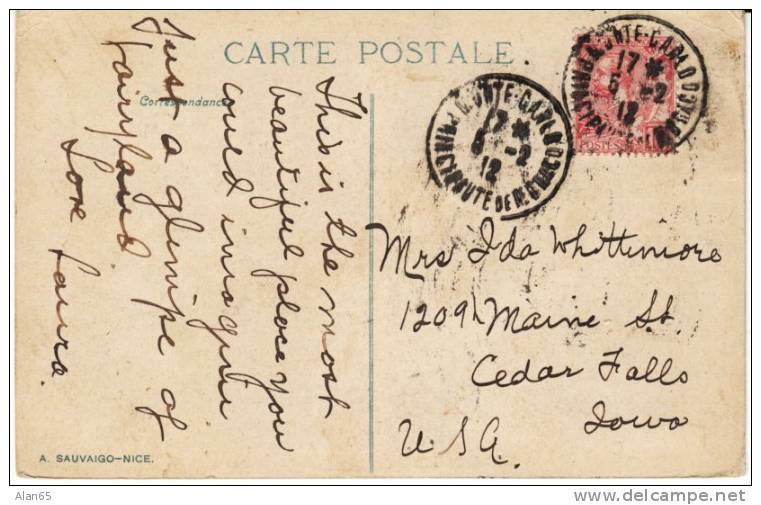 CARTE POSTALE
Correspondance
This is the most
beautiful place you
could imagine
Just a glimpse of
fairyland
Love Laura.
A. SAUVAIGO–NICE.
MONTE-CARLO
17 *
6 -2
12
PRINCIPAUTÉ DE MONACO
MONTE-CARLO
17 *
6 -2
12
POSTES
Mrs Ida Whittimore
1209 Maine St.
Cedar Falls
Iowa
U.S.A.
Alan65
www.delcampe.net